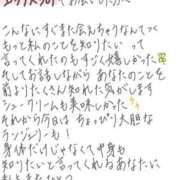 こんなにすぐまた会えちゃうなんてっ
もっと私のことを知りたい って
言ってくれたのもすごく嬉しかった
そしてお話しながら あなたのことを
前よりたくさん知れた気がします
シュークリームも美味しかった
それから今日は ちょっぴり大胆な
ランジェリー も!
身体だけじゃなくて中身も
知りたいと言ってくれるあなたに